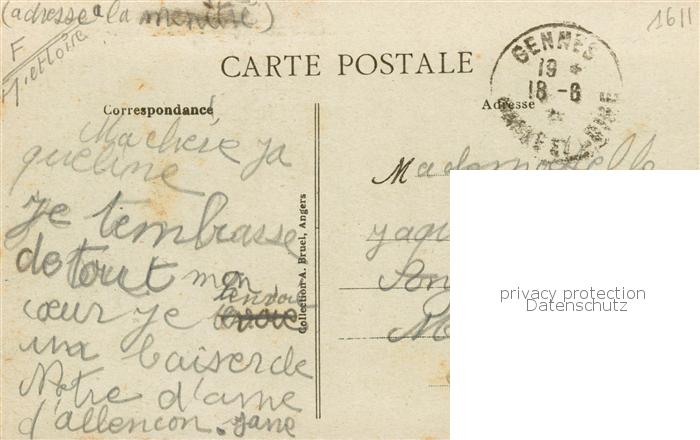 (adresse à la menitré)
1611
F
CARTE POSTALE
GENNES
19 *
18 - 6
MAINE ET LOIRE
Correspondance
Adresse
Ma chère ja
queline
je tembrasse
de tout mon
cœur je
tenvoie
un baiser de
Notre d'ame
d'allencon. jane
Collection A. Bruel, Angers
Mademoiselle
jaqu
privacy protection
Datenschutz